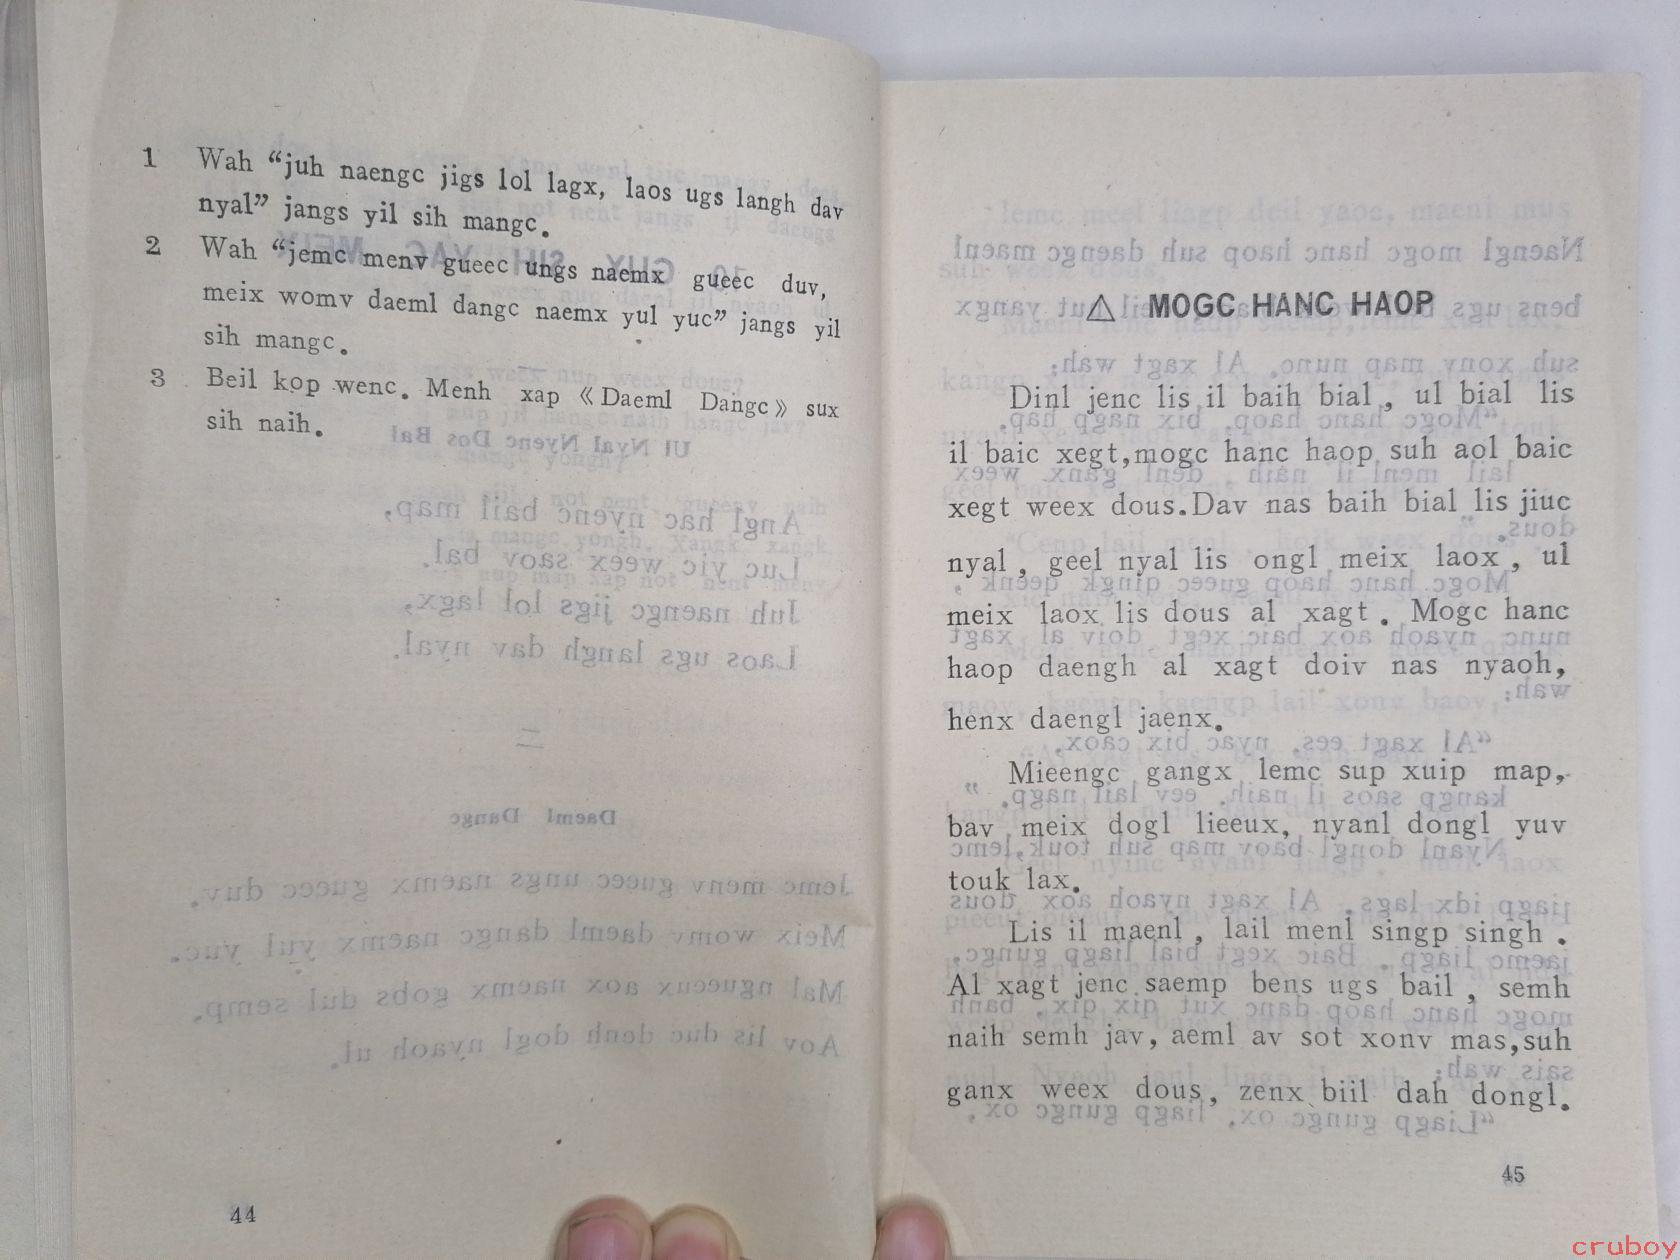 1 Wah “juh naengc jigs lol lagx, laos ugs langh dav
nyal” jangs yil sih mangc.
2 Wah “jemc menv gueec ungs naemx gueec duv,
meix womv daeml dangc naemx yul yuc” jangs yil
sih mangc.
3 Beil kop wenc. Menh xap 《Daeml Dangc》 sux
sih naih.
44
△ MOGC HANC HAOP
Dinl jenc lis il baih bial, ul bial lis
il baic xegt, mogc hanc haop suh aol baic
xegt weex dous. Dav nas baih bial lis jiuc
nyal, geel nyal lis ongl meix laox, ul
meix laox lis dous al xagt. Mogc hanc
haop daengh al xagt doiv nas nyaoh,
henx daengl jaenx.
Mieengc gangx lemc sup xuip map,
bav meix dogl lieeux, nyanl dongl yuv
touk lax.
Lis il maenl, lail menl singp singh.
Al xagt jenc saemp bens ugs bail, semh
naih semh jav, aeml av sot xonv mas, suh
ganx weex dous, zenx biil dah dongl.
45
cruboy